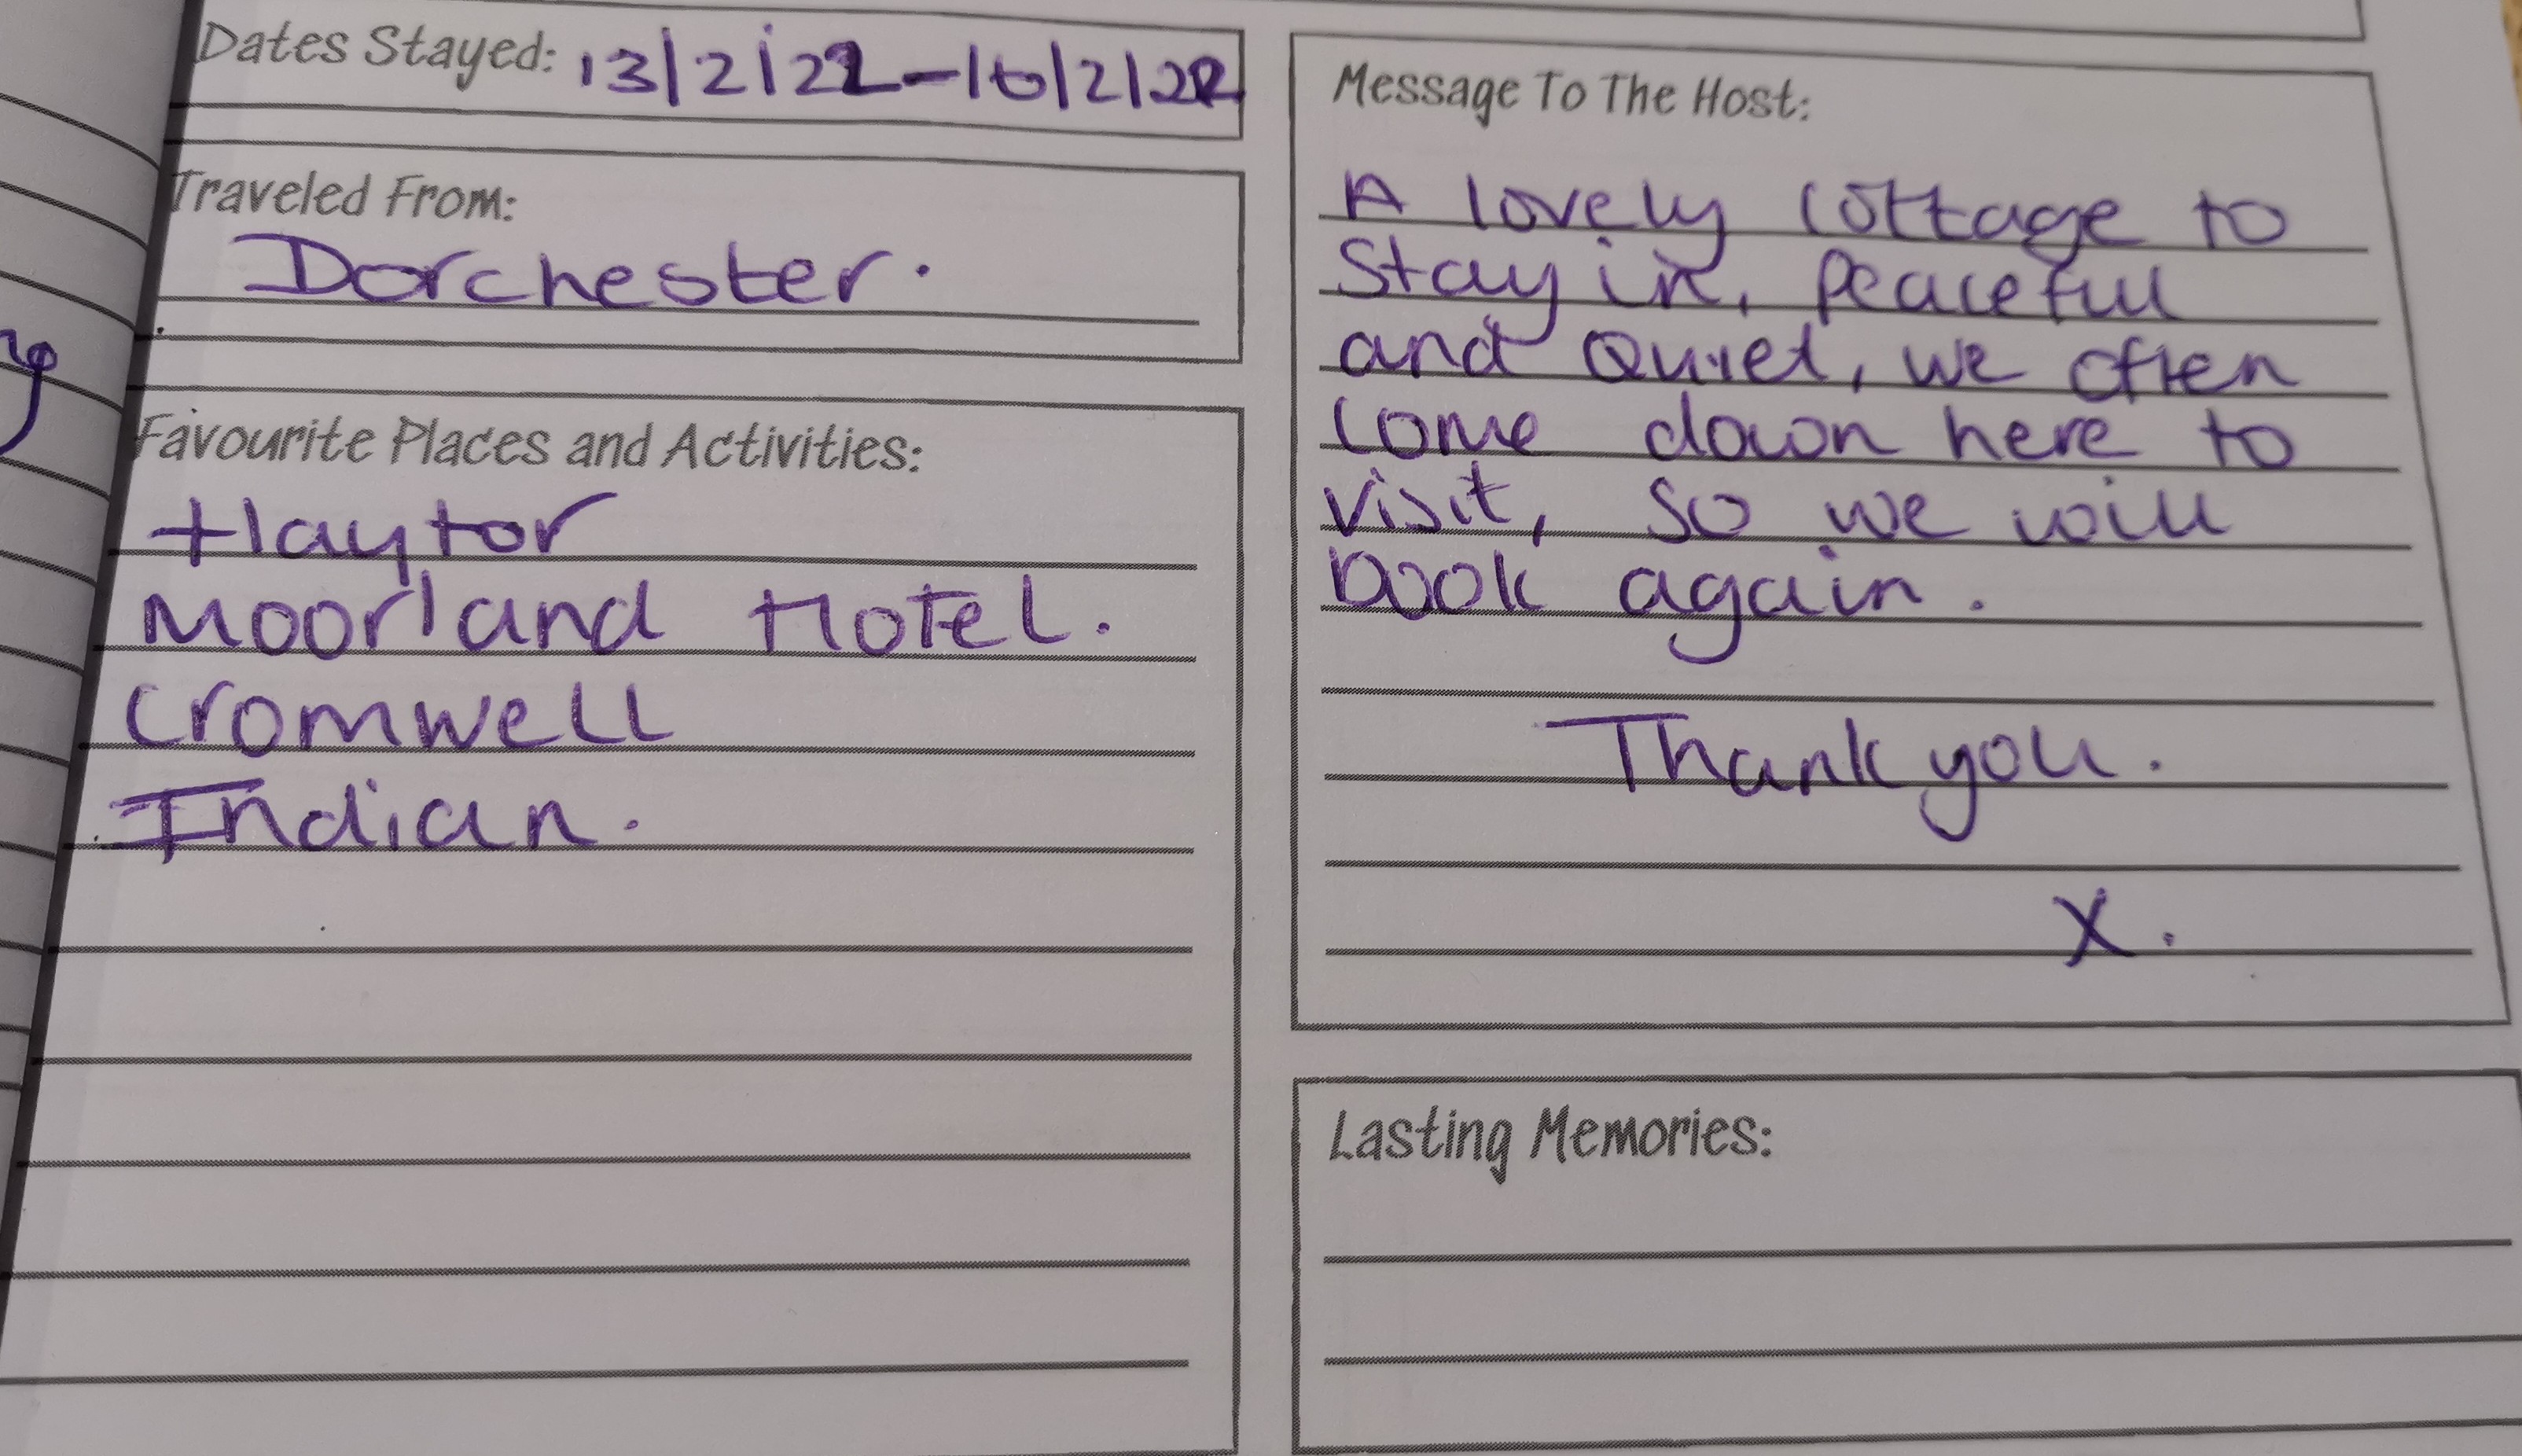 Dates Stayed: 13/2/22-16/2/22
Traveled From:
Dorchester.
Favourite Places and Activities:
Haytor
Moorland Hotel.
Cromwell
Indian.
Message To The Host:
A lovely cottage to
stay in, peaceful
and Quiet, we often
come down here to
visit, so we will
book again.
Thank you.
X.
Lasting Memories: